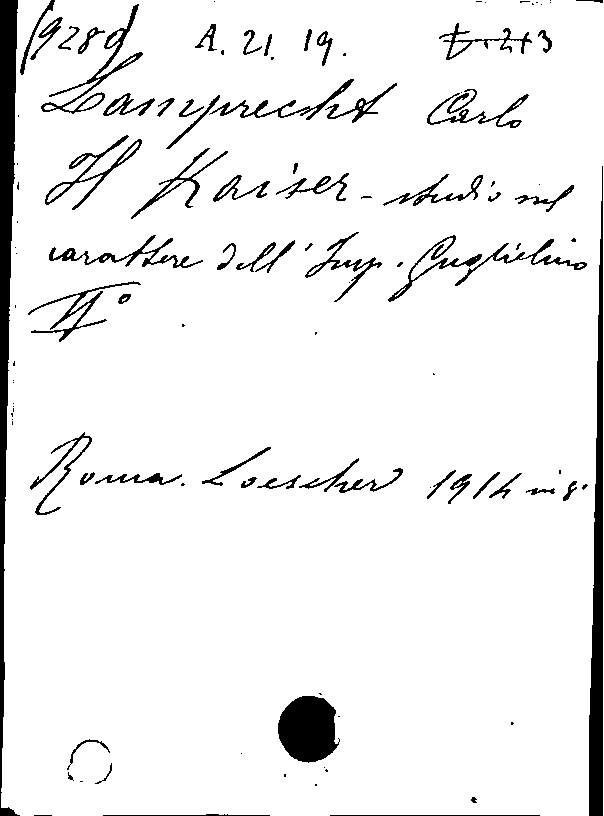 (9289) A. 21. 19.
Lamprecht Carlo
Il Kaiser - studio sul
carattere dell' Imp. Guglielmo
II°
Roma. Loescher 1914 in 8°